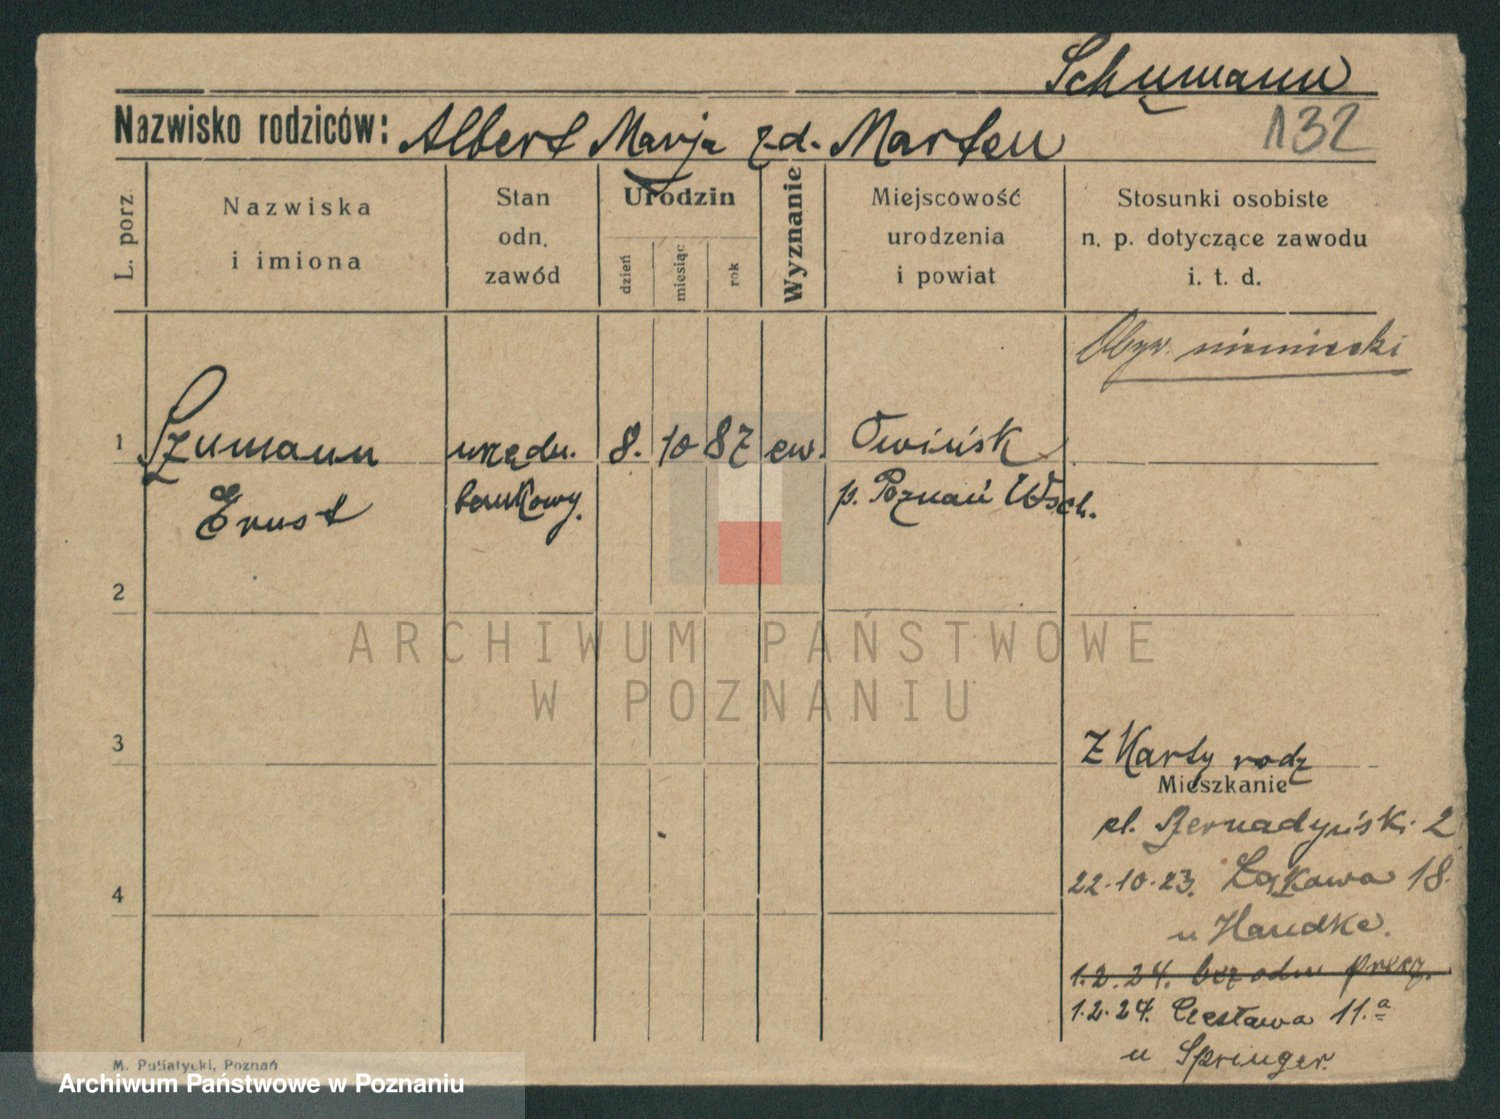 Schumann
Nazwisko rodziców: Albert Marja z d. Marten
132
L. porz.
Nazwiska
i imiona
Stan
odn.
zawód
Urodzin
dzień
miesiąc
rok
Wyznanie
Miejscowość
urodzenia
i powiat
Stosunki osobiste
n. p. dotyczące zawodu
i. t. d.
Obyw. niemiecki
1 Szumann urzędn. 8. 10 87 ew. Owińsk
Ernst bankowy. p. Poznań Wsch.
2
ARCHIWUM PAŃSTWOWE
W POZNANIU
3
Z Karty rodz
Mieszkanie
pl. Bernadyński 2
4
22.10.23. Łąkawa 18.
u Handke.
1.2.24. bez odm
1.2.24. 11.a
u Springer.
M. Putiatycki, Poznań
Archiwum Państwowe w Poznaniu